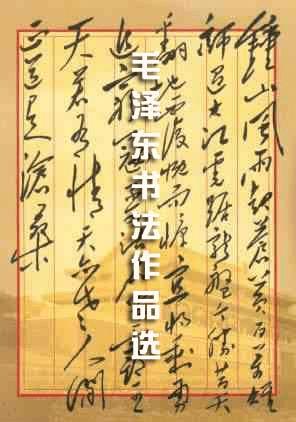 毛泽东书法作品选
鐘山風雨起蒼黄百万雄
師過大江虎踞龍盤今勝昔天
翻地覆慨而慷宜将剩勇
追穷寇不可沽名学霸王
天若有情天亦老人間
正道是滄桑